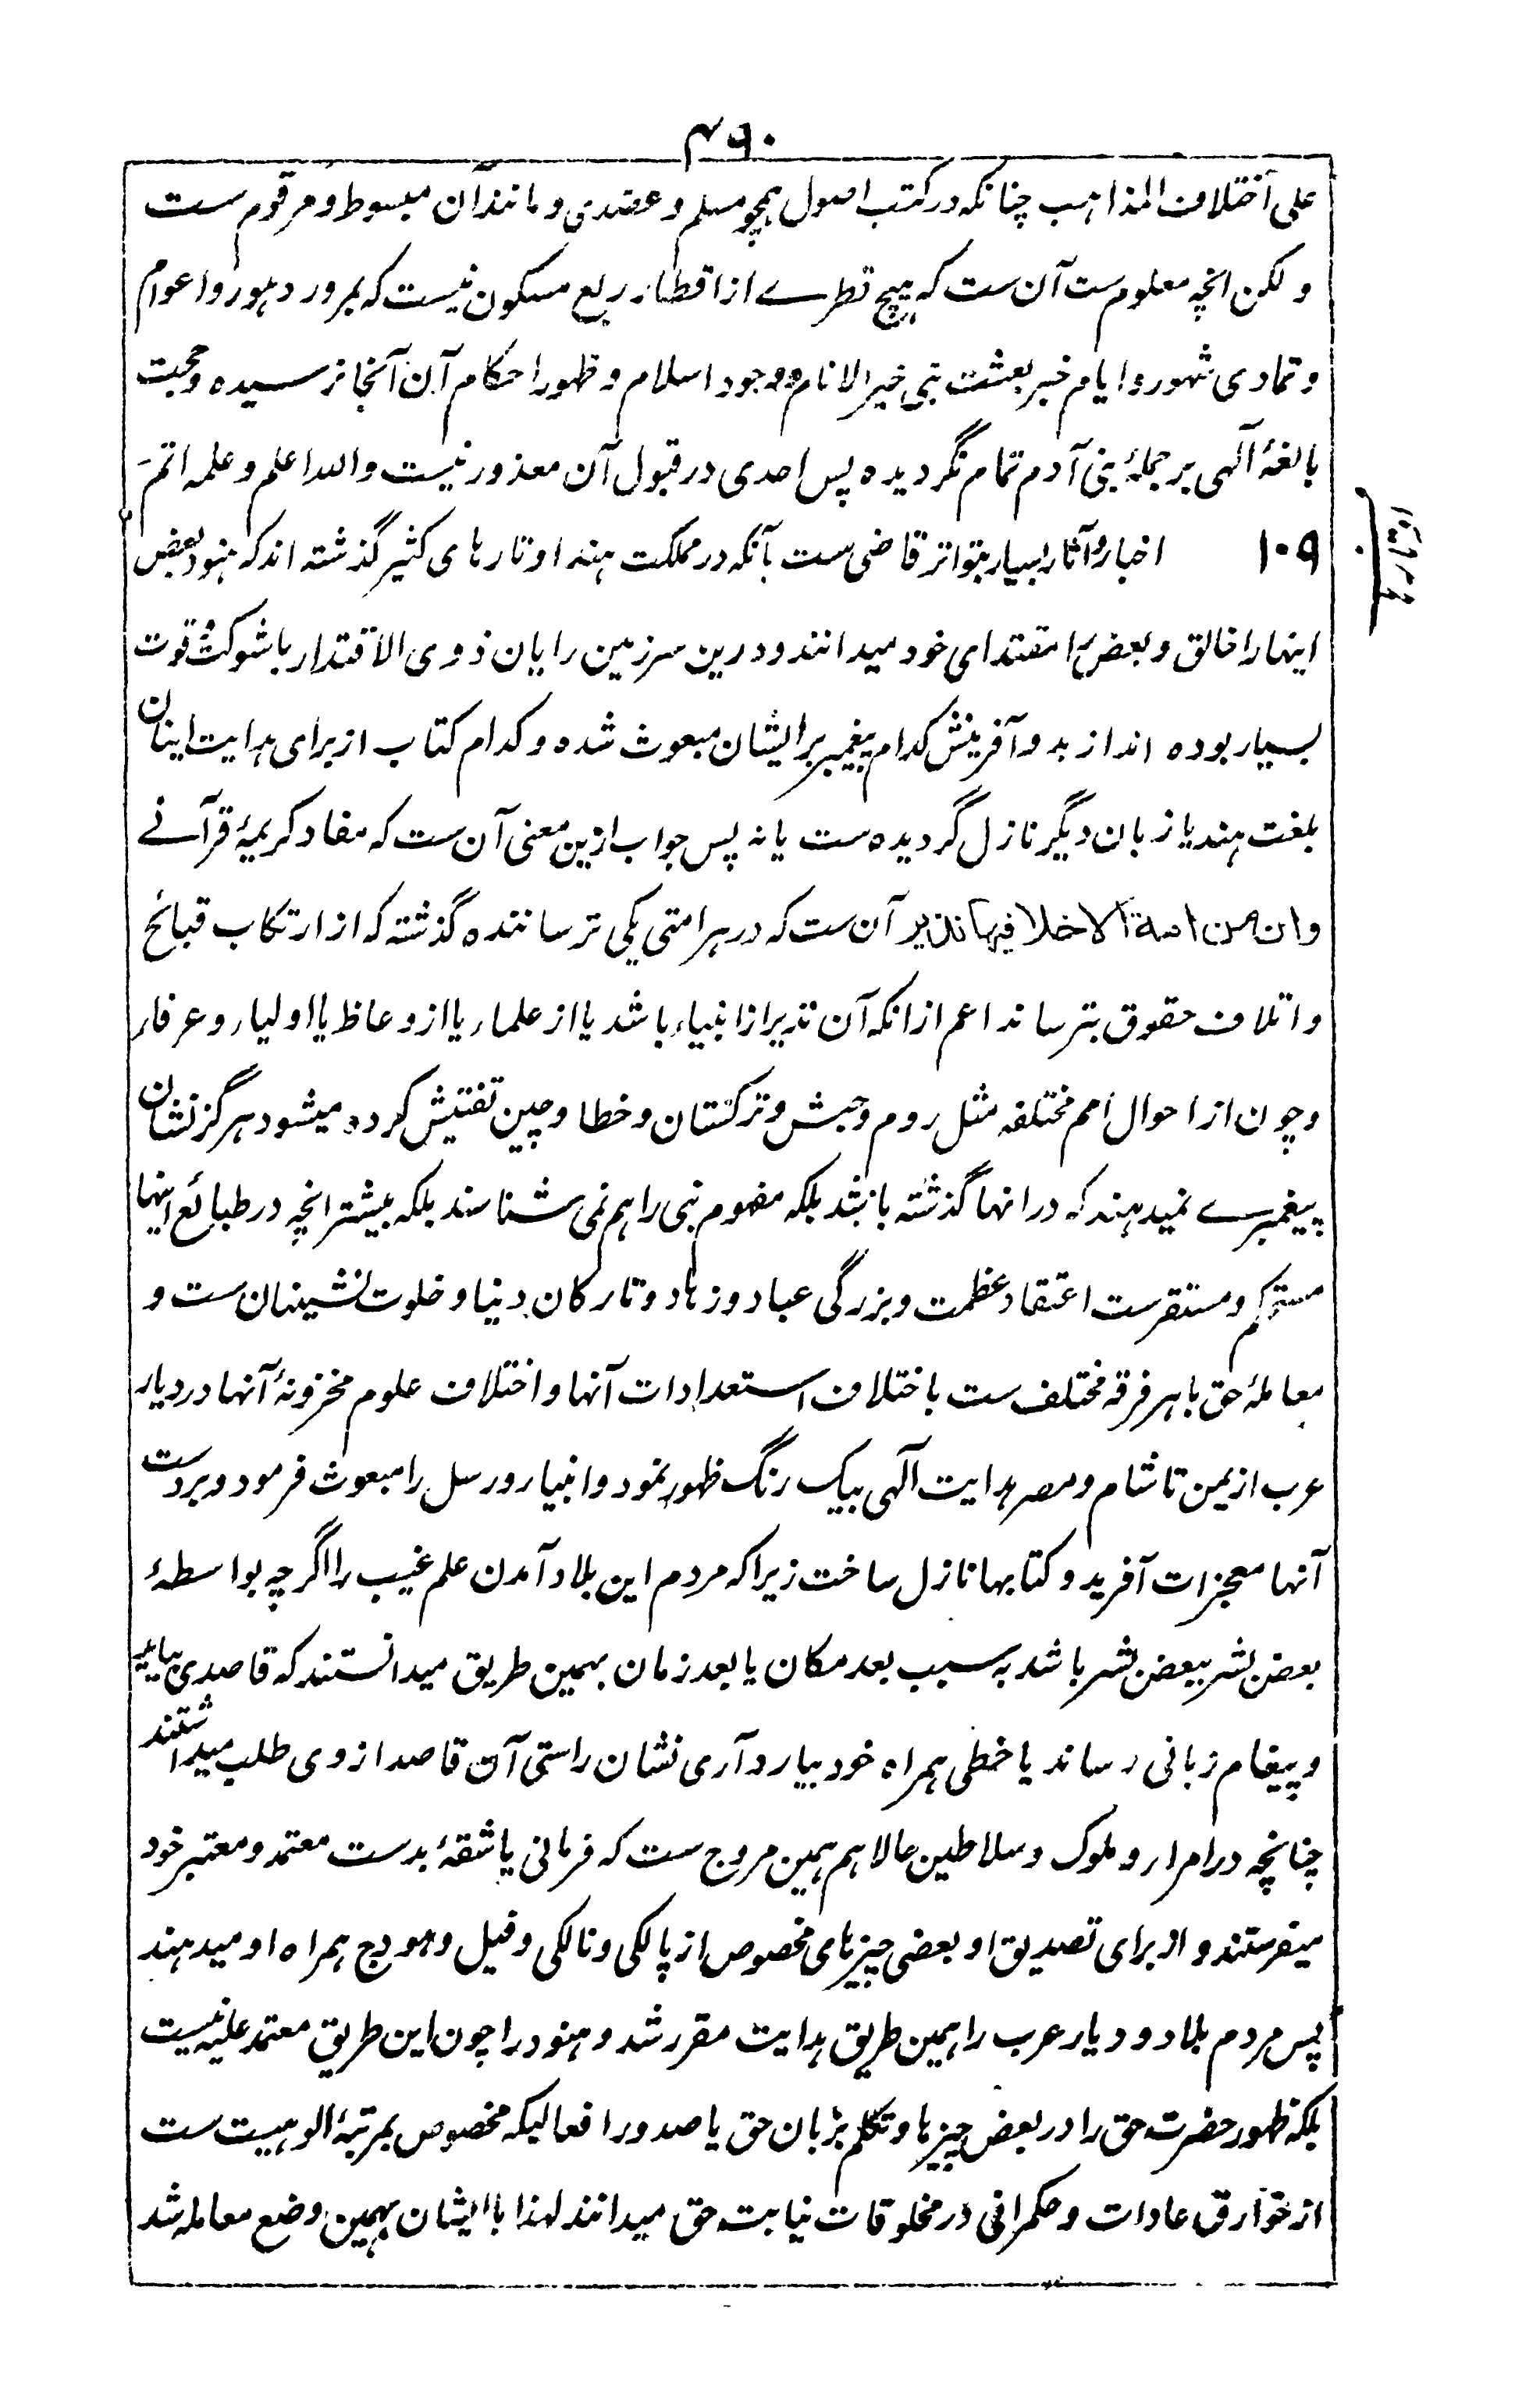 ۴۶۰
علی اختلاف المذاهب چنانکه در کتب اصول همچو مسلم و عضدی و مانند آن مبسوط و مرقوم ست
و لکن انچه معلوم ست آن ست که هیچ قطرے از اقطار ربع مسکون نیست که بمرور دهور و اعوام
و تمادی شهور و ایام خبر بعثت نبی خیر الانام و وجود اسلام و ظهور احکام آن آنجا نرسیده و حجت
بالغهٔ آلهی بر جملهٔ بنی آدم تمام نگردیده پس احدی در قبول آن معذور نیست والله اعلم و علمه اتم
۱۰۹ اخبار و آثار بسیار بتواتر قاضی ست بآنکه در مملکت هند اوتارهای کثیر گذشته اند که هنود بعض
اینها را خالق و بعض را مقتدای خود میدانند و درین سرزمین رایان ذوی الاقتدار با شوکت و قوت
بسیار بوده اند از بدو آفرینش کدام پیغمبر بر ایشان مبعوث شده و کدام کتاب از برای هدایت اینان
بلغت هند یا زبان دیگر نازل گردیده ست یا نه پس جواب ازین معنی آن ست که مفاد کریمهٔ قرآنے
وان من امة الا خلا فیها نذیر آن ست که در هر امتی یکی ترساننده گذشته که از ارتکاب قبائح
و اتلاف حقوق بترساند اعم از انکه آن نذیر از انبیاء باشد یا از علماء یا از وعاظ یا اولیاء و عرفاء
و چون از احوال امم مختلفه مثل روم و حبش و ترکستان و خطا و چین تفتیش کرده میشود هرگز نشان
پیغمبرے نمیدهند که در انها گذشته باشد بلکه مفهوم نبی را هم نمی شناسند بلکه بیشتر انچه در طبائع اینها
مستحکم و مستقر ست اعتقاد عظمت و بزرگی عباد و زهاد و تارکان دنیا و خلوت نشینان ست و
معاملهٔ حق با هر فرقه مختلف ست باختلاف استعدادات آنها و اختلاف علوم مخزونهٔ آنها در دیار
عرب از یمن تا شام و مصر هدایت آلهی بیک رنگ ظهور نمود و انبیاء و رسل را مبعوث فرمود و بر دست
آنها معجزات آفرید و کتابها نازل ساخت زیرا که مردم این بلاد آمدن علم غیب را اگرچه بواسطهٔ
بعض بشر ببعض بشر باشد به سبب بعد مکان یا بعد زمان بهمین طریق میدانستند که قاصدی بیاید
و پیغام زبانی رساند یا خطی همراه خود بیارد آری نشان راستی آن قاصد از وی طلب میداشتند
چنانچه در امراء و ملوک و سلاطین حالا هم همین مروج ست که فرمانی یا شقهٔ بدست معتمد و معتبر خود
میفرستند و از برای تصدیق او بعضی چیزهای مخصوص از پالکی و نالکی و فیل و هودج همراه او میدهند
پس مردم بلاد و دیار عرب را همین طریق هدایت مقرر شد و هنود را چون این طریق معتمد علیه نیست
بلکه ظهور حضرت حق را در بعض چیزها و تکلم بزبان حق یا صدور افعالیکه مخصوص بمرتبهٔ الوهیت ست
از خوارق عادات و حکمرانی در مخلوقات نیابت حق میدانند لهذا با ایشان بهمین وضع معامله شد